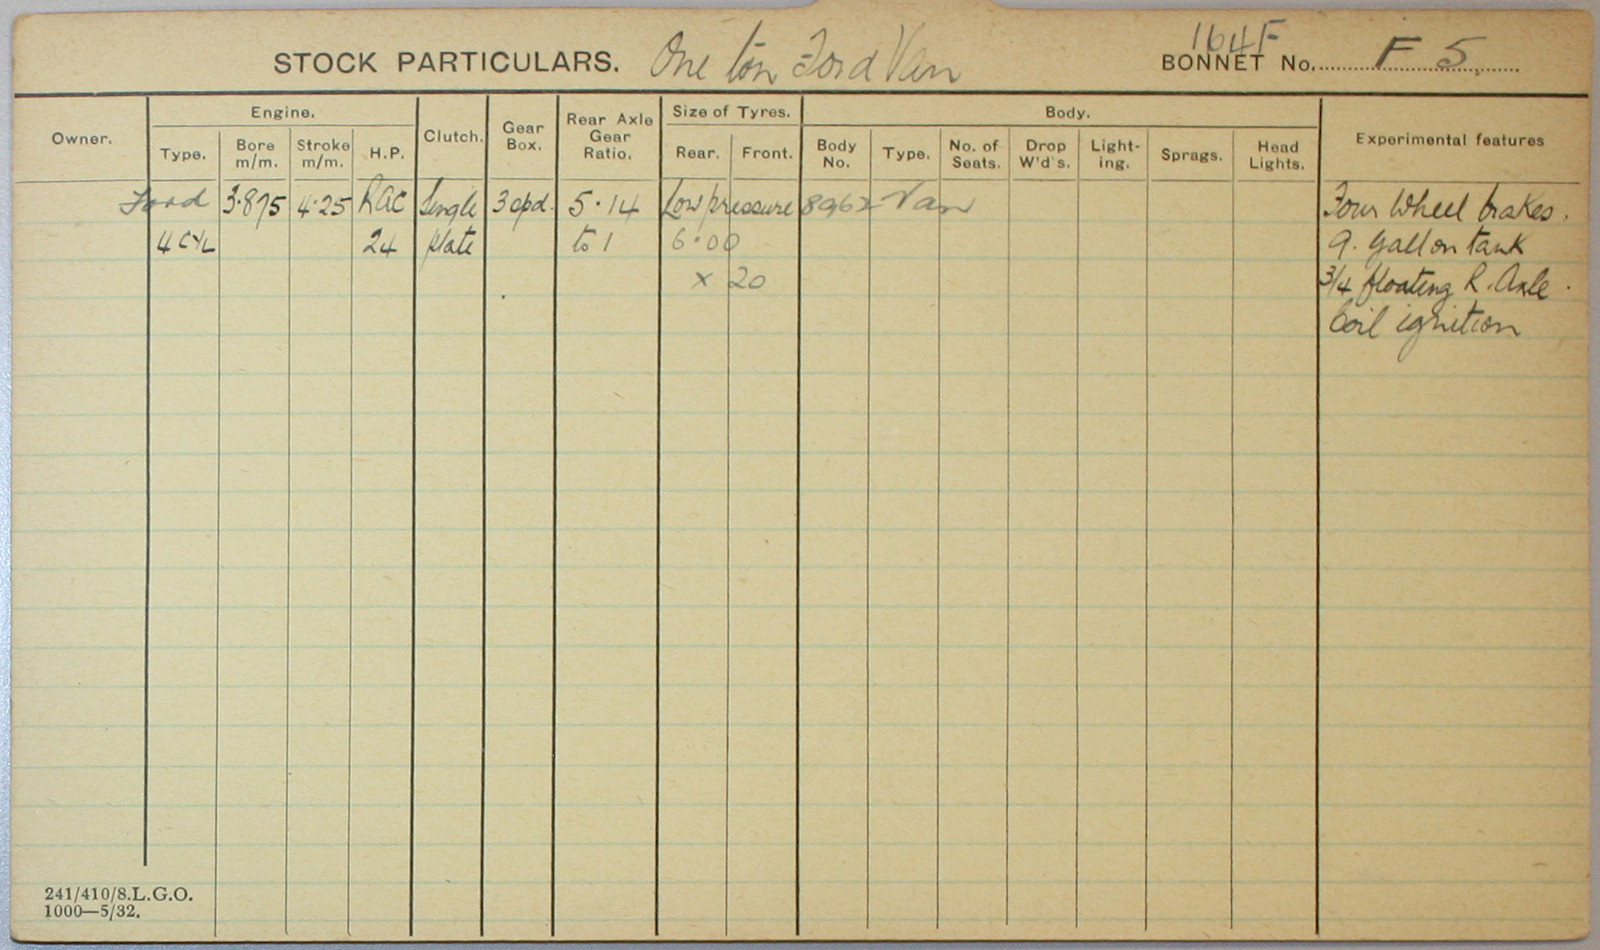 1641F
STOCK PARTICULARS. One ton Ford Van BONNET No. F 5.
Owner. Engine. Clutch. Gear Box. Rear Axle Gear Ratio. Size of Tyres. Body. Experimental features
Type. Bore m/m. Stroke m/m. H.P. Rear. Front. Body No. Type. No. of Seats. Drop W'd's. Light-ing. Sprags. Head Lights.
Ford 3.875 4.25 RAC Single 3 spd. 5.14 Low pressure 8962 Van Four Wheel brakes.
4 CYL 24 plate to 1 6.00 9. Gallon tank
x 20 3/4 floating R. Axle.
Coil ignition
241/410/8.L.G.O.
1000—5/32.